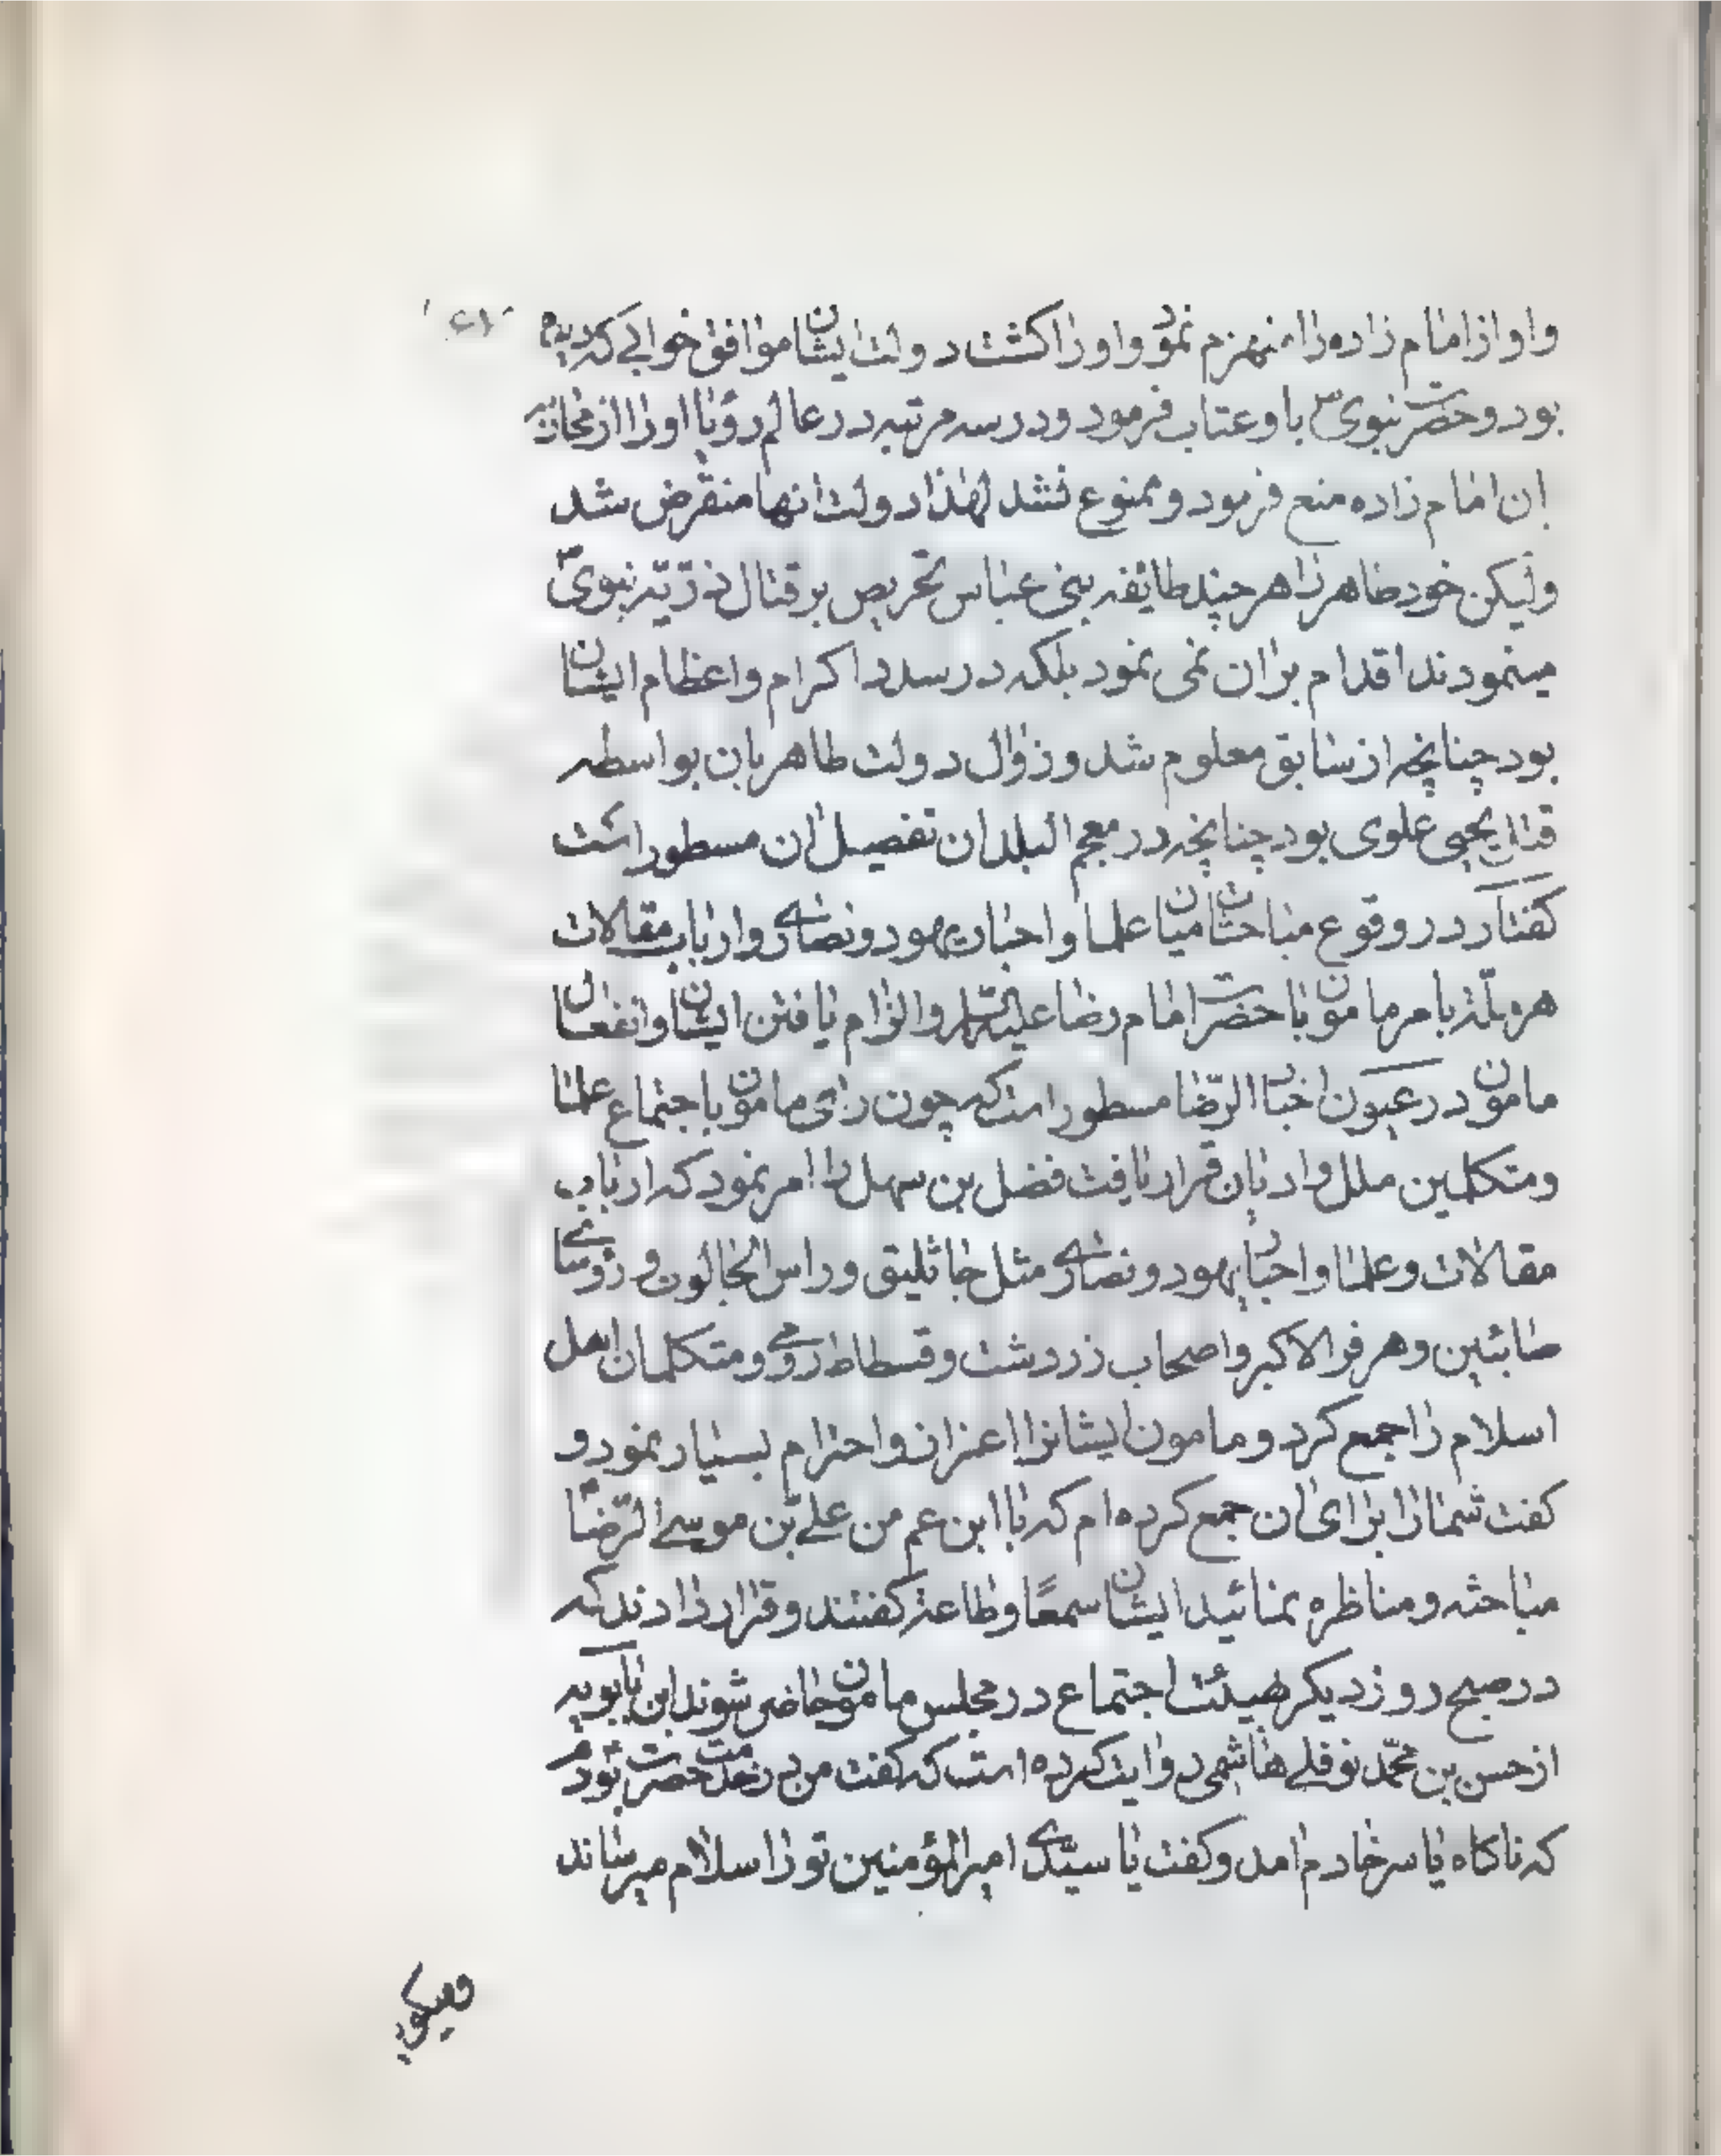 واو از امام زاده را منهزم نمود واو را کشت دولت ایشان موافق خوابی که دیده
بود و حضرت نبوی ص با و عتاب فرمود و در سه مرتبه در عالم رؤیا او را از محاربه
ان امام زاده منع فرمود و ممنوع نشد لهذا دولت انها منقرض شد
ولیکن خود طاهر را هر چند طایفه بنی عباس تحریص بر قتال ذریّه نبوی ص
مینمودند اقدام بران نمی نمود بلکه در سدد اکرام و اعظام ایشان
بود چنانچه از سابق معلوم شد و زوال دولت طاهریان بواسطه
قتل یحیی علوی بود چنانچه در معجم البلدان تفصیل ان مسطور است
کفتار در وقوع مباحثات میان علما و احبار یهود و نصاری و ارباب مقالات
هر ملّة بامر مامون با حضرت امام رضا علیه السّلام و الزام یافتن ایشان و انفعال
مامون در عیون اخبار الرّضا مسطور است که چون رای مامون باجتماع علما
و متکلمین ملل و ادیان قرار یافت فضل بن سهل را امر نمود که ارباب
مقالات و علما و احبار یهود و نصاری مثل جاثلیق و راس الجالوت و رؤسای
صابئین و هرفر الاکبر و اصحاب زردشت و قسطاط رومی و متکلمان اهل
اسلام را جمع کرد و مامون ایشانرا اعزاز و احترام بسیار نمود و
کفت شما را برای ان جمع کرده ام که با ابن عم من علی بن موسی الرّضا
مباحثه و مناظره نمائید ایشان سمعًا و طاعة کفتند و قرار دادند که
در صبح روز دیکر هیئت اجتماع در مجلس مامون حاضر شوند ابن بابویه
از حسن بن محمّد نوفلی هاشمی روایت کرده است که کفت من در خدمت حضرت بودم
که ناکاه یاسر خادم امد و کفت یا سیّدی امیر المؤمنین تو را سلام میرساند